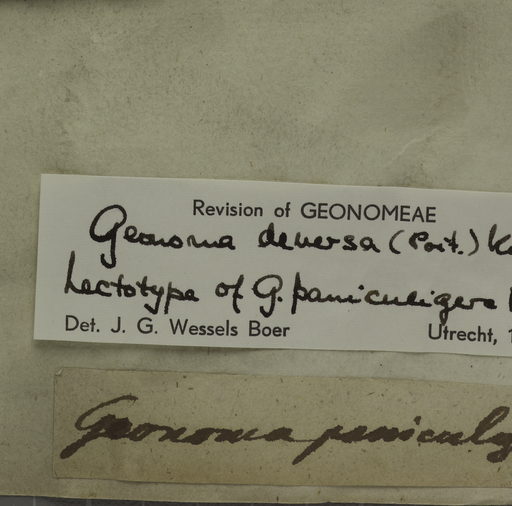 Revision of GEONOMEAE
Geonoma deversa (Poit.) K
Lectotype of G. paniculigera
Det. J. G. Wessels Boer Utrecht, 1
Geonoma panicul